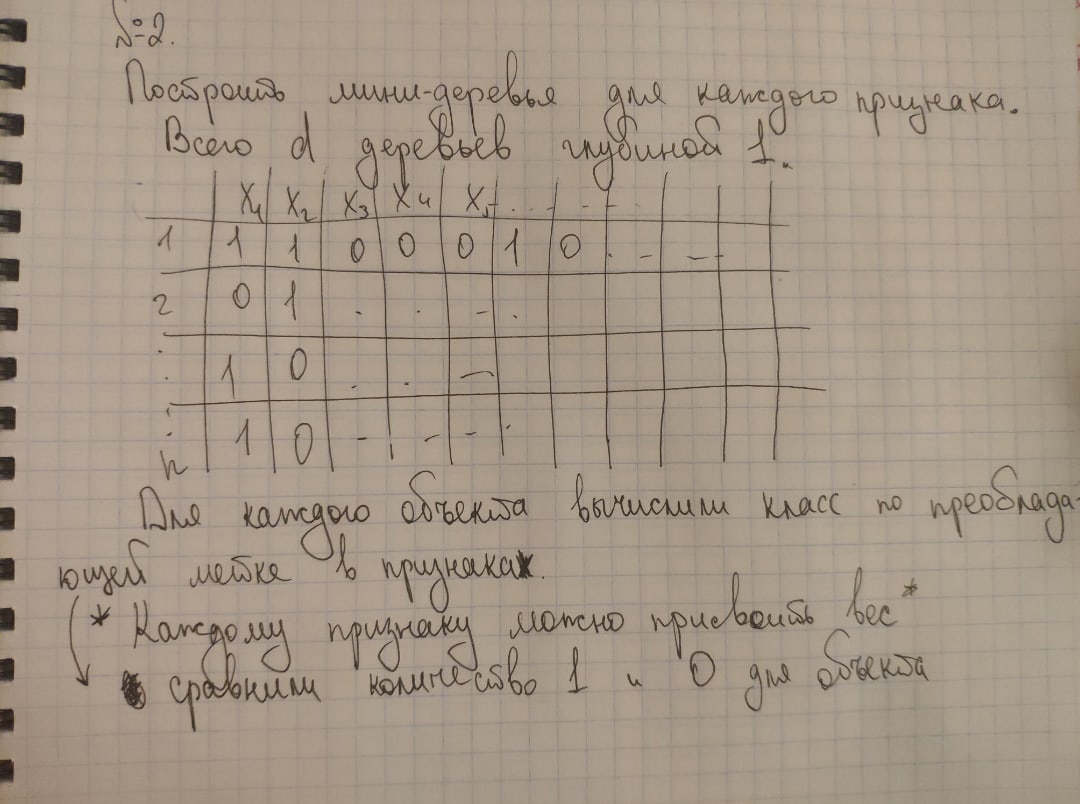 №2.
Построить мини-деревья для каждого признака.
Всего d деревьев глубиной 1.
X₁ X₂ X₃ X₄ X₅ . . . - - .
1 1 1 0 0 0 1 0 . - - .
2 0 1 . . - .
. 1 0 . . —
n 1 0 - - - .
Для каждого объекта вычислили класс по преоблада-
ющей метке в признаках.
* Каждому признаку можно присвоить вес*
сравнили количество 1 и 0 для объекта